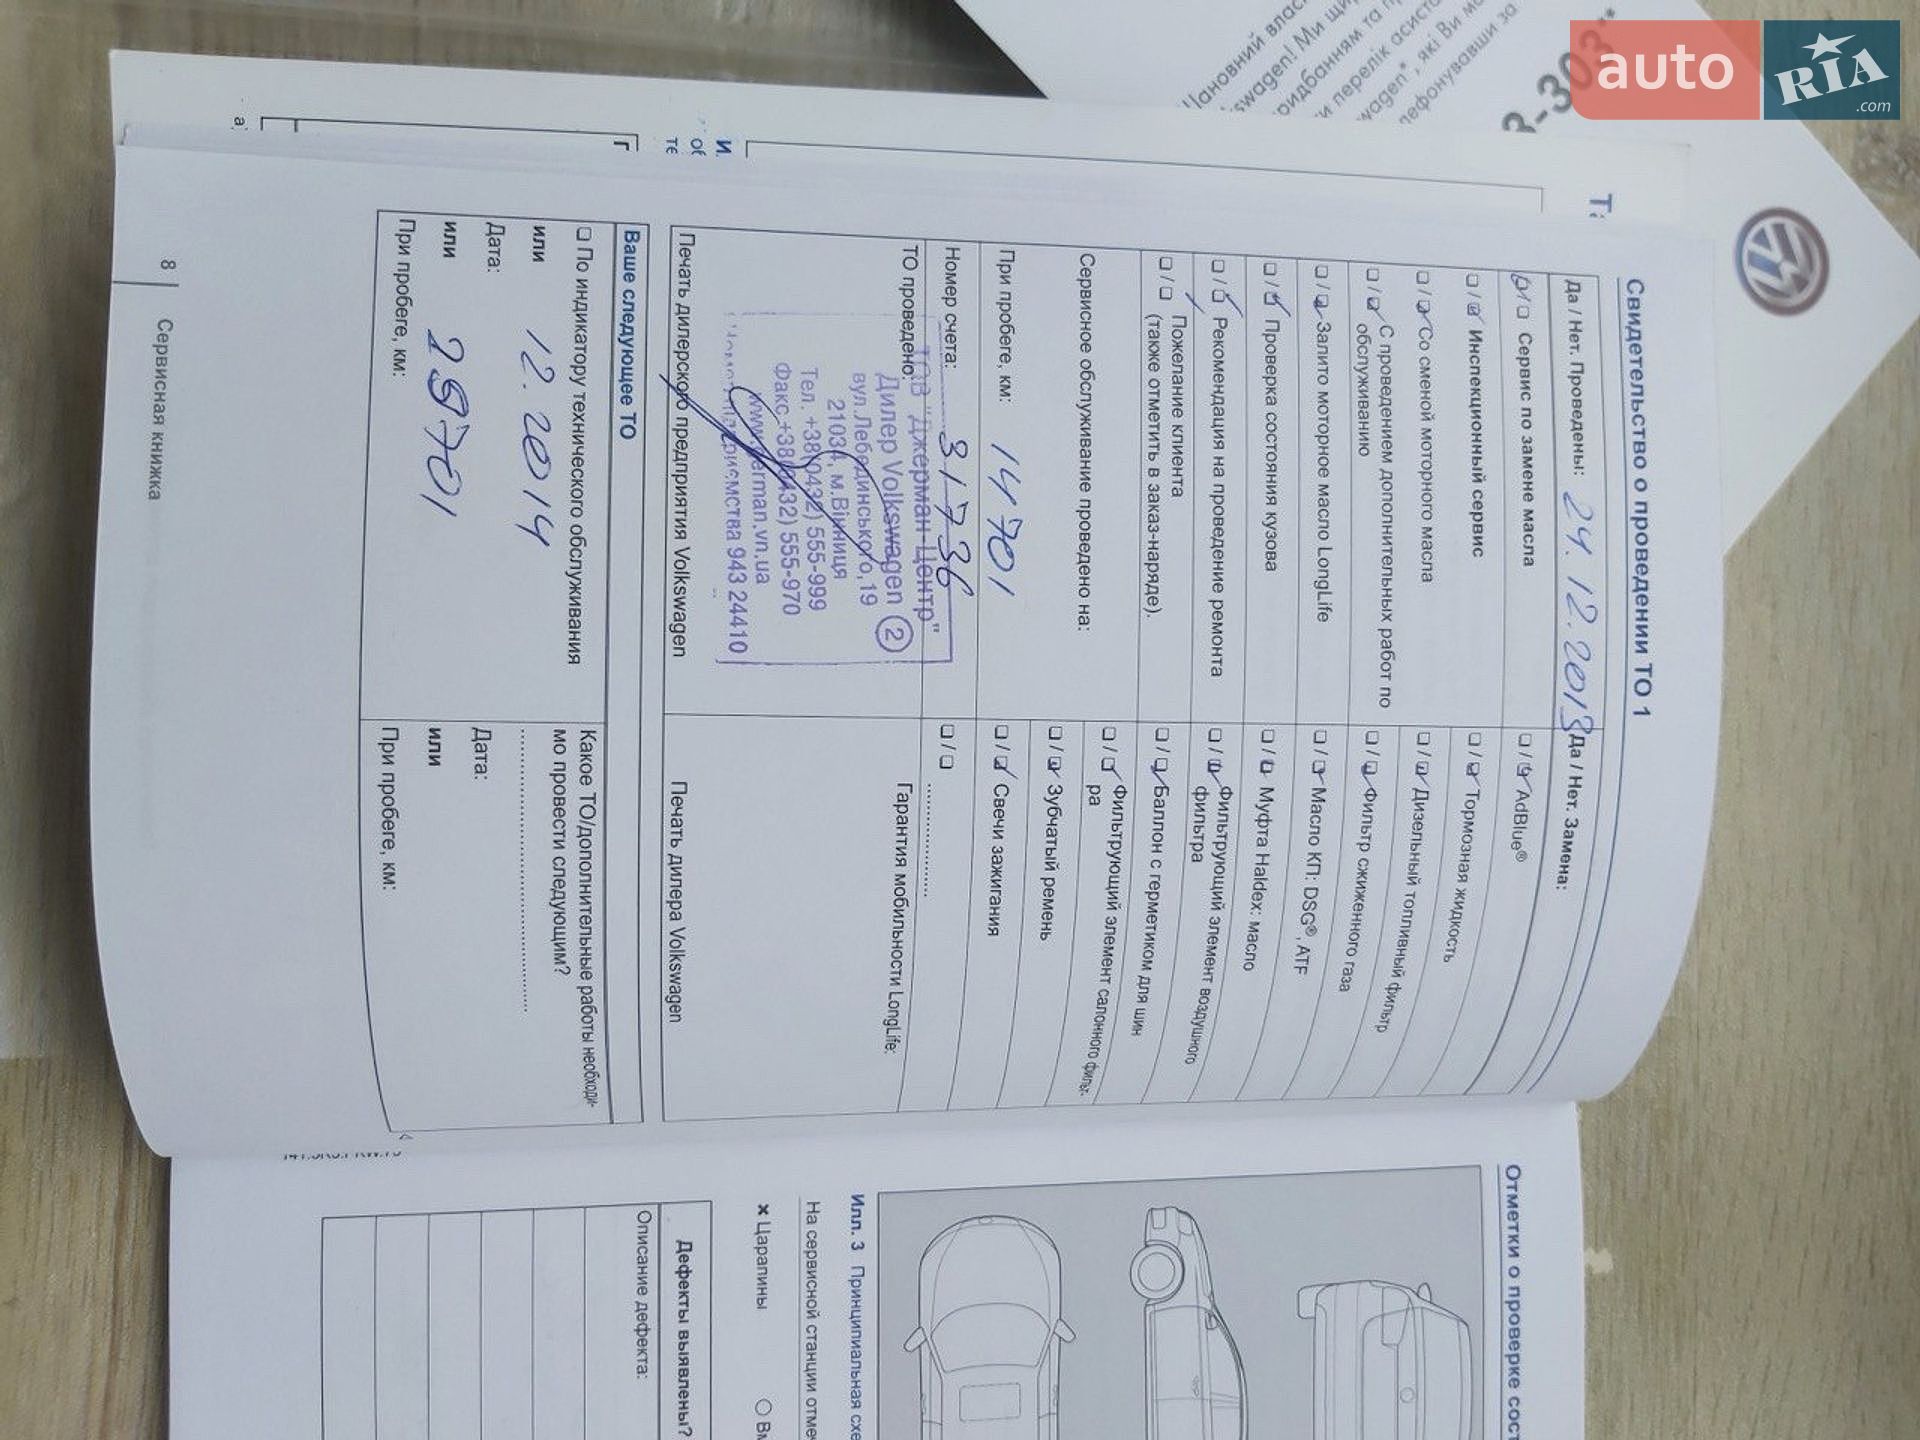 Свидетельство о проведении ТО 1
Да / Нет. Проведены: 24.12.2013
Сервис по замене масла
Инспекционный сервис
Со сменой моторного масла
С проведением дополнительных работ по
обслуживанию
Залито моторное масло LongLife
Проверка состояния кузова
Рекомендация на проведение ремонта
Пожелание клиента
(также отметить в заказ-наряде).
Сервисное обслуживание проведено на:
При пробеге, км: 14701
Номер счета: 31736
ТО проведено:
ТОВ "Джерман-Центр"
Дилер Volkswagen 2
вул.Лебединського,19
21034, м.Вінниця
Тел. +38(0432) 555-999
Факс.+38(0432) 555-970
www.german.vn.ua
943 24410
Печать дилерского предприятия Volkswagen
Да / Нет. Замена:
AdBlue®
Тормозная жидкость
Дизельный топливный фильтр
Фильтр сжиженного газа
Масло КП: DSG®, ATF
Муфта Haldex: масло
Фильтрующий элемент воздушного
фильтра
Баллон с герметиком для шин
Фильтрующий элемент салонного фильт-
ра
Зубчатый ремень
Свечи зажигания
Гарантия мобильности LongLife:
Печать дилера Volkswagen
Ваше следующее ТО
По индикатору технического обслуживания
или
Дата: 12.2014
или
При пробеге, км: 29701
Какое ТО/дополнительные работы необходи-
мо провести следующим?
Дата:
или
При пробеге, км:
8 Сервисная книжка
Отметки о проверке сост
Илл. 3 Принципиальная схе
На сервисной станции отме
× Царапины
Дефекты выявлены?
Описание дефекта:
auto
RIA
.com